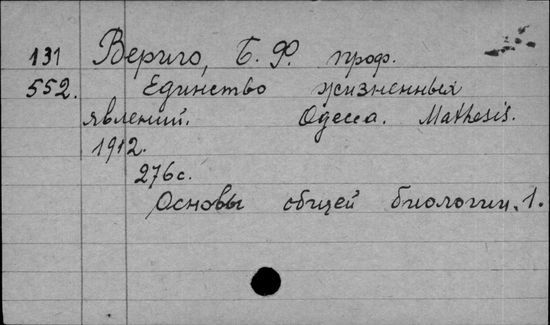 131 Вериго, Б. Ф. проф.
552. Единство жизненных
явлений. Одесса. Mathesis.
1912.
276 с.
Основы общей биологии. 1.